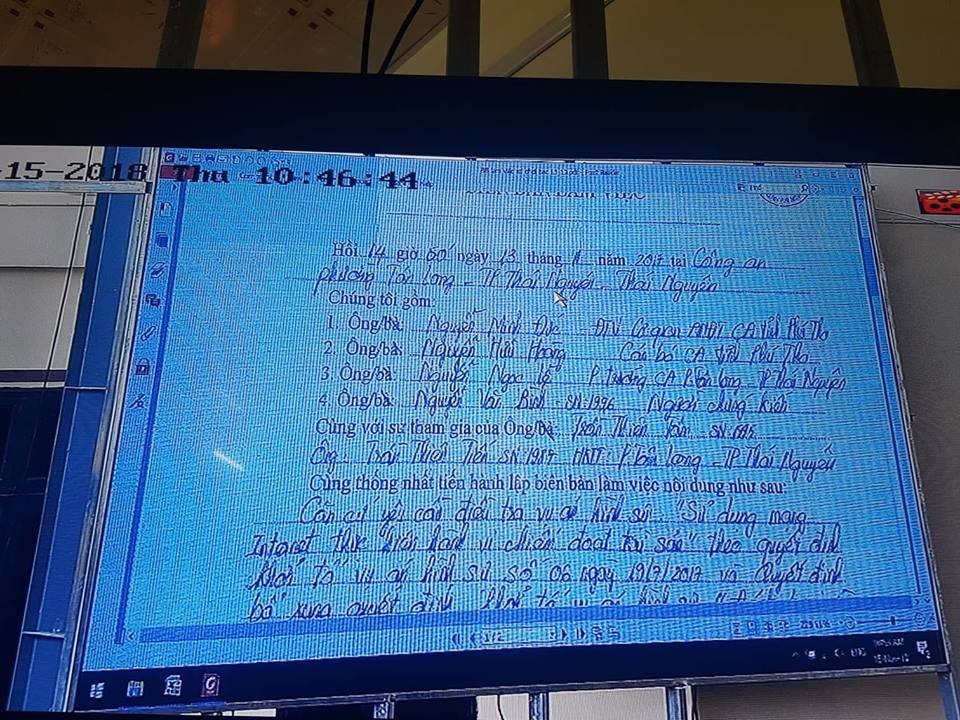 -15-2018 Thu 10:46:44
Hồi 14 giờ 50 ngày 13 tháng 11 năm 2017 tại Công an
phường Tân Long - TP Thái Nguyên - Thái Nguyên
Chúng tôi gồm:
1. Ông/bà: Nguyễn Minh Đức - ĐTV Cơ quan ANĐT CA tỉnh Phú Thọ
2. Ông/bà: Nguyễn Hữu Cán bộ CA tỉnh Phú Thọ
3. Ông/bà: Nguyễn Ngọc P. trưởng CA P. Tân Long - TP Thái Nguyên
4. Ông/bà: Nguyễn Văn Bình - SN: 1996 Người chứng kiến
Cùng với sự tham gia của Ông/bà: Trần
Ông Trần SN 1987 HKTT: P. Tân Long - TP Thái Nguyên
Cùng thống nhất tiến hành lập biên bản làm việc nội dung như sau:
Căn cứ yêu cầu điều tra vụ án hình sự "Sử dụng mạng
Internet thực hiện hành vi chiếm đoạt tài sản" theo quyết định
khởi tố vụ án hình sự số 06 ngày 19/7/2017 và Quyết định
bổ sung quyết định khởi tố vụ án hình sự
1/2